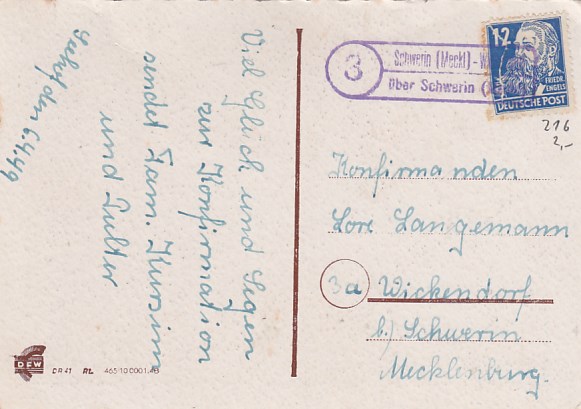 Viel Glück und Segen
zur Konfirmation
sendet Fam.
und
den 6.4.49
3
Schwerin (Meckl) - W
über Schwerin (
12
FRIEDR. ENGELS
DEUTSCHE POST
216
2,-
Konfirmanden
Lore Langemann
3a Wickendorf
b/ Schwerin
Mecklenburg.
DFW
DR 41 RL 465 10 0001.48